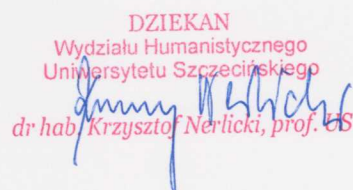 DZIEKAN
Wydziału Humanistycznego
Uniwersytetu Szczecińskiego
dr hab. Krzysztof Nerlicki, prof. US